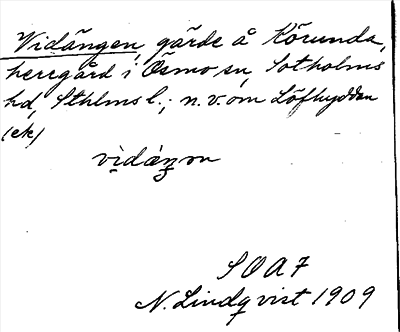 Vidängen, gärde å Körunda,
herrgård i Ösmo sn, Sotholms
hd, Sthlms l.; n.v. om Löfhyddan
(ek)
vìdáŋən
SOAF
N. Lindqvist 1909